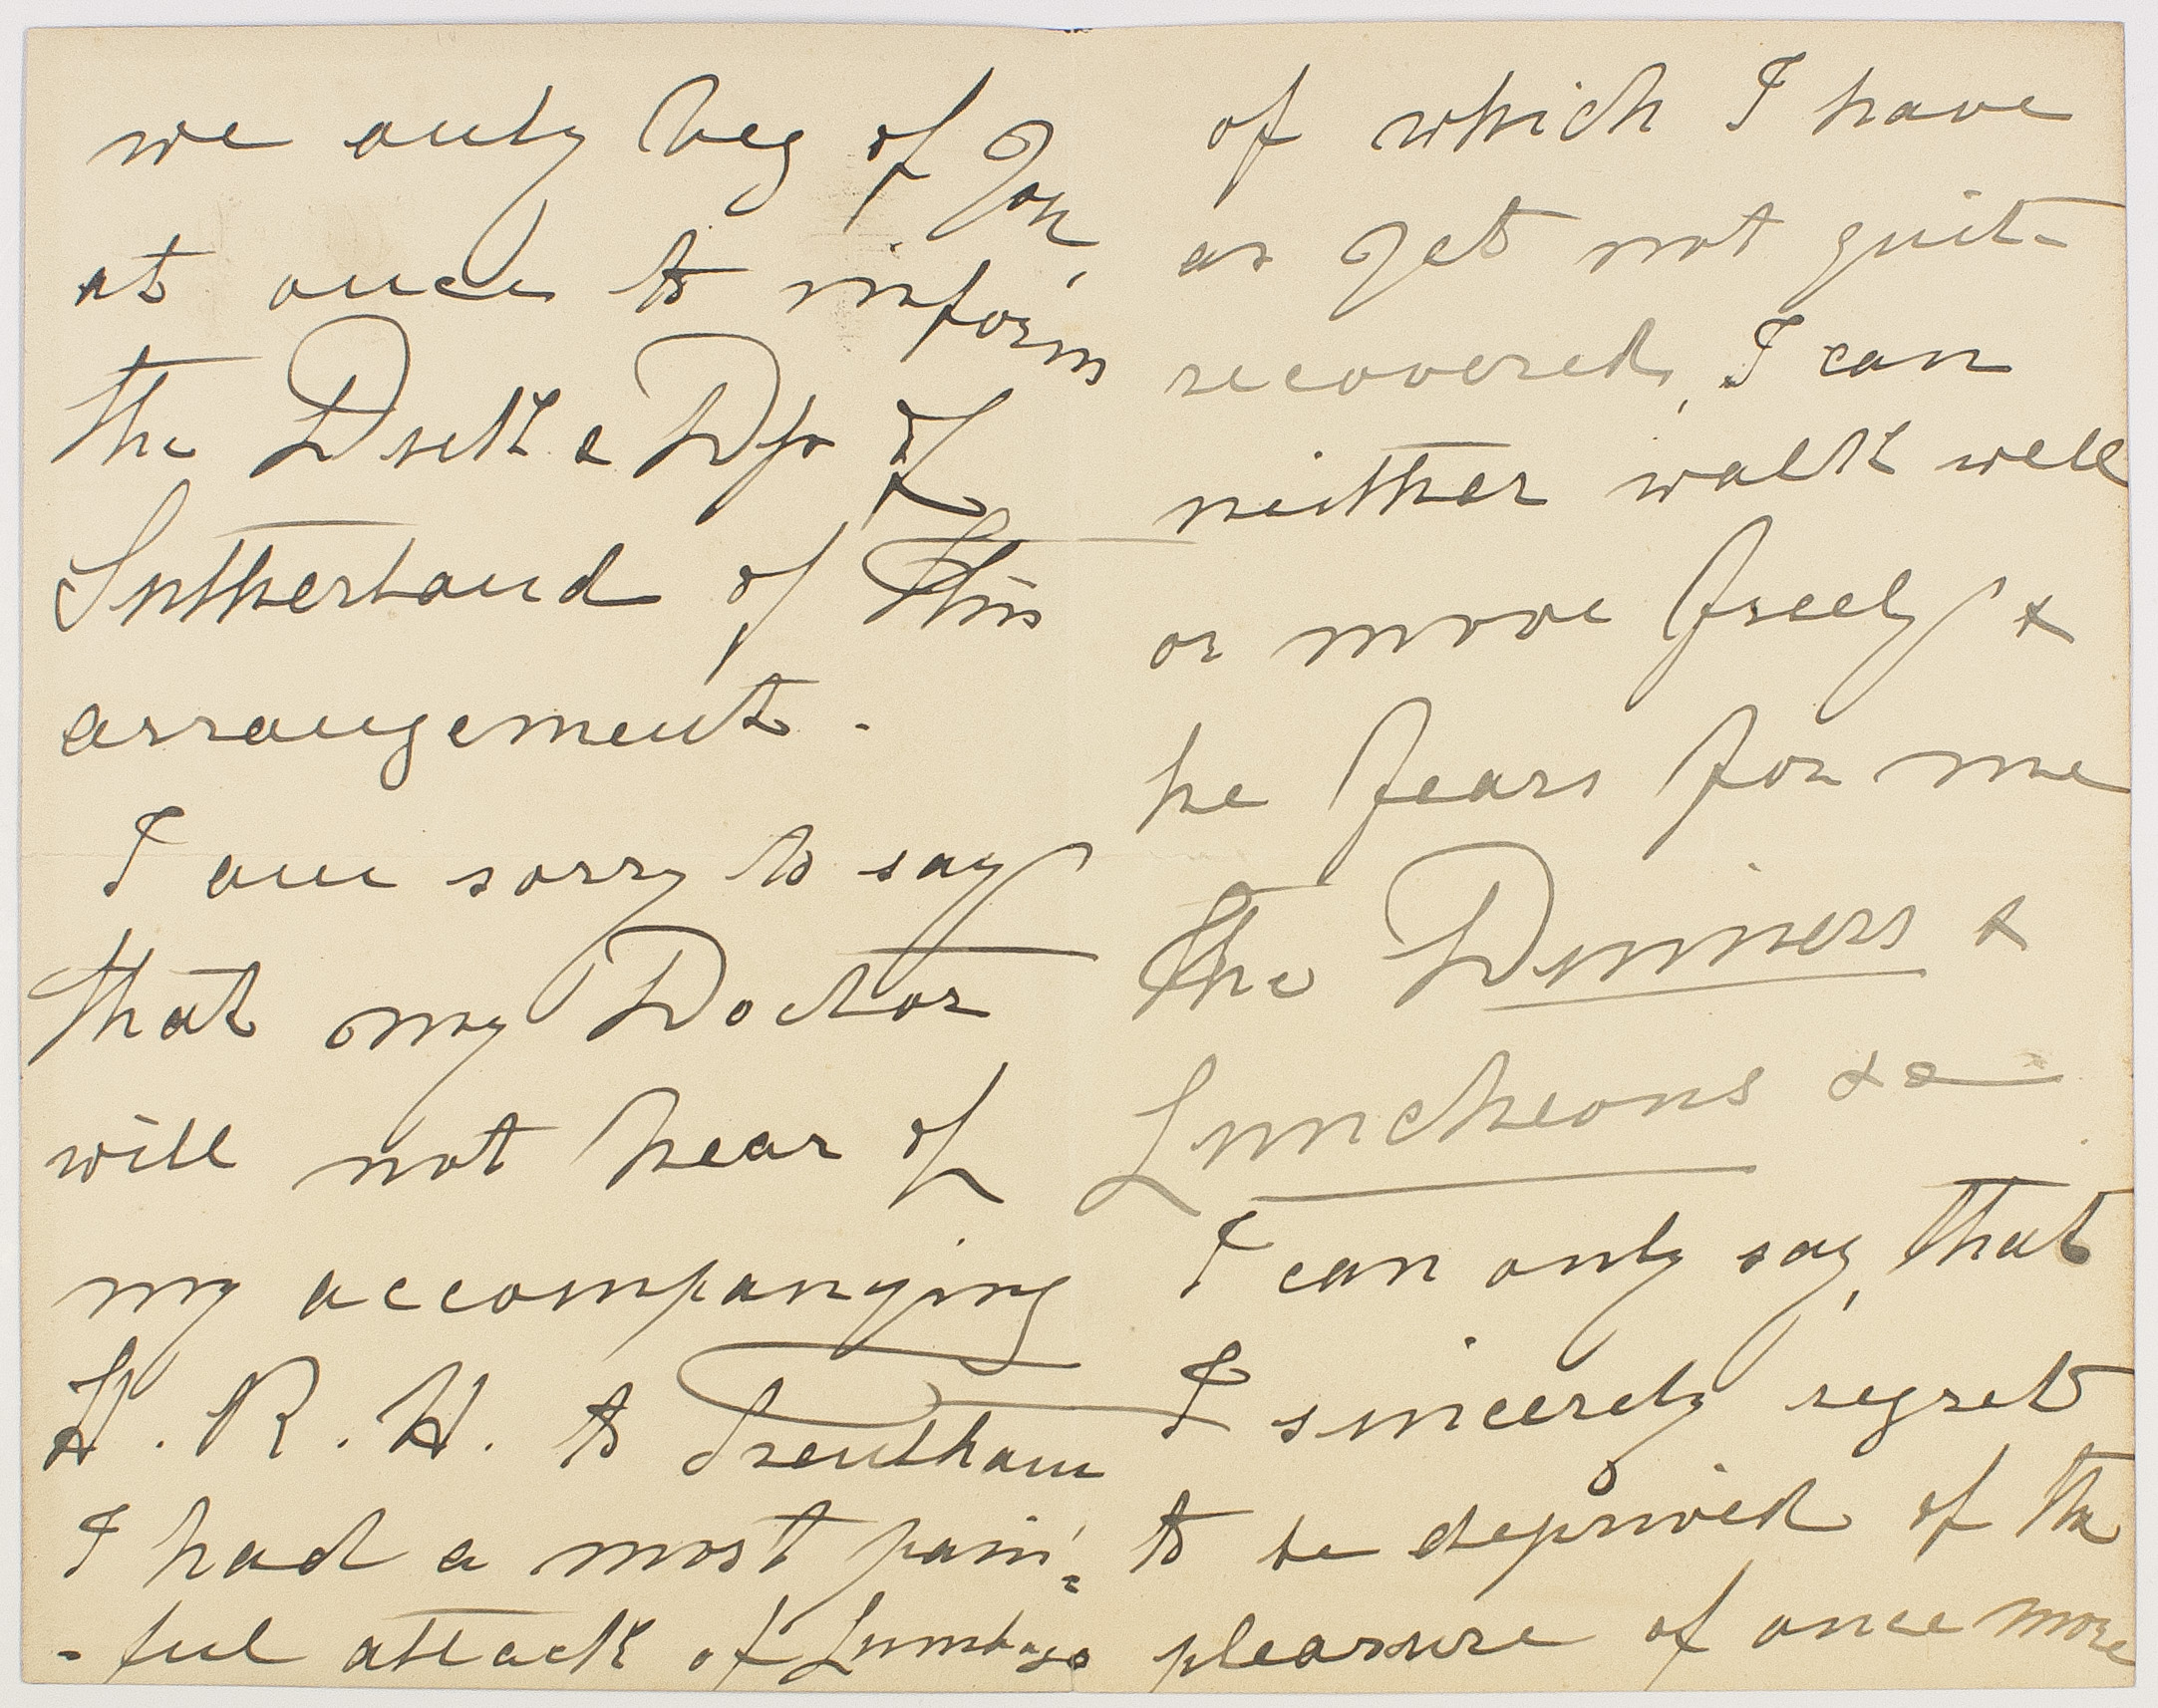 we only beg of You,
at once to inform
the Duke & Dss of
Sutherland of this
arrangement.
I am sorry to say
that my Doctor
will not hear of
my accompanying
H. R. H. to Trentham
I had a most pain=
-ful attack of Lumbago
of which I have
as yet not quite
recovered, I can
neither walk well
or move freely &
he fears for me
the Dinners &
Luncheons &c
I can only say, that
I sincerely regret
to be deprived of the
pleasure of once more